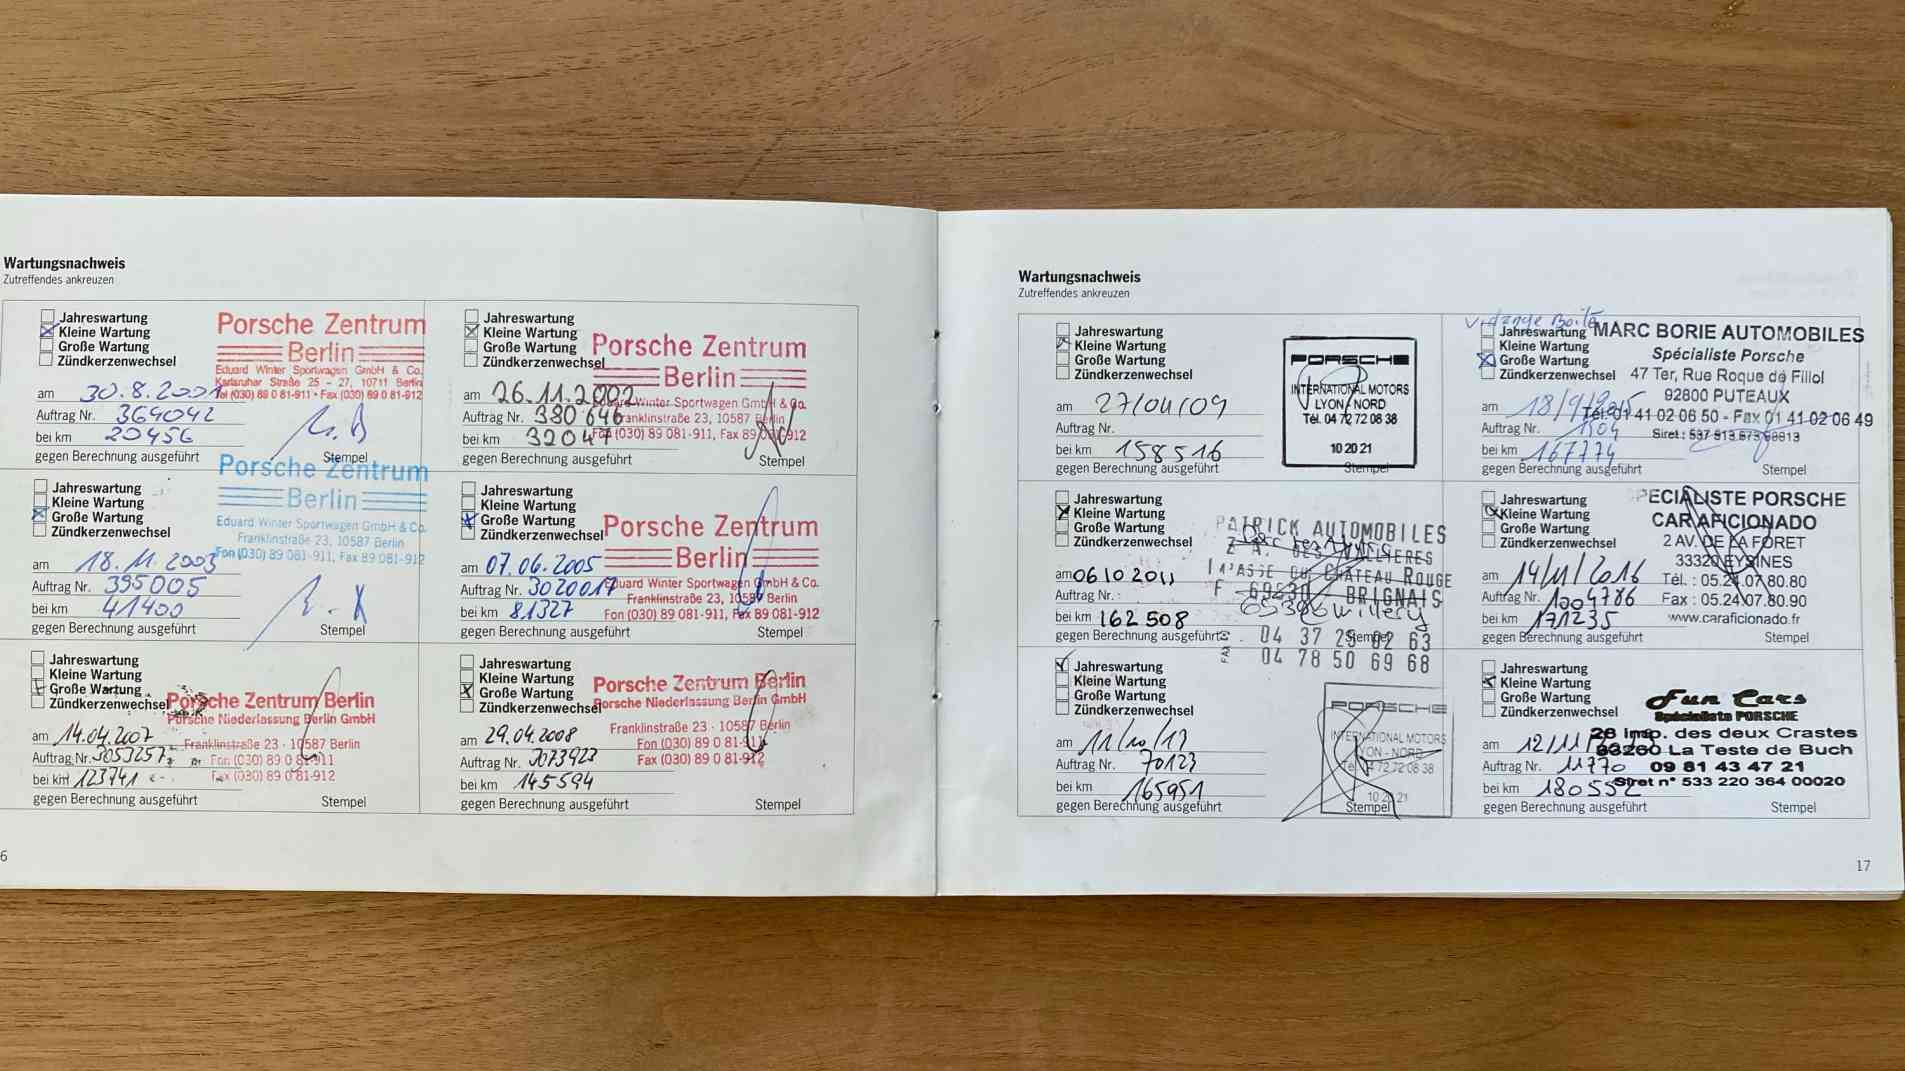 Wartungsnachweis
Zutreffendes ankreuzen
Jahreswartung
Kleine Wartung
Große Wartung
Zündkerzenwechsel
Porsche Zentrum
Berlin
Eduard Winter Sportwagen GmbH & Co.
Karlsruher Straße 25 - 27, 10711 Berlin
Tel (030) 89 0 81-911 • Fax (030) 89 0 81-912
am 30.8.2001
Auftrag Nr. 364042
bei km 20456
gegen Berechnung ausgeführt
Stempel
Jahreswartung
Kleine Wartung
Große Wartung
Zündkerzenwechsel
Porsche Zentrum
Berlin
Eduard Winter Sportwagen GmbH & Co.
Franklinstraße 23, 10587 Berlin
Fon (030) 89 081-911, Fax 89 081-912
am 26.11.2002
Auftrag Nr. 380646
bei km 32047
gegen Berechnung ausgeführt
Stempel
Jahreswartung
Kleine Wartung
Große Wartung
Zündkerzenwechsel
Porsche Zentrum
Berlin
Eduard Winter Sportwagen GmbH & Co.
Franklinstraße 23, 10587 Berlin
Fon (030) 89 081-911, Fax 89 081-912
am 18.11.2003
Auftrag Nr. 395005
bei km 41400
gegen Berechnung ausgeführt
Stempel
Jahreswartung
Kleine Wartung
Große Wartung
Zündkerzenwechsel
Porsche Zentrum
Berlin
Eduard Winter Sportwagen GmbH & Co.
Franklinstraße 23, 10587 Berlin
Fon (030) 89 081-911, Fax 89 081-912
am 07.06.2005
Auftrag Nr. 3020017
bei km 81327
gegen Berechnung ausgeführt
Stempel
Jahreswartung
Kleine Wartung
Große Wartung
Zündkerzenwechsel
Porsche Zentrum Berlin
Porsche Niederlassung Berlin GmbH
Franklinstraße 23 · 10587 Berlin
Fon (030) 89 0 81-911
Fax (030) 89 0 81-912
am 14.04.2007
Auftrag Nr. 3053257
bei km 123741
gegen Berechnung ausgeführt
Stempel
Jahreswartung
Kleine Wartung
Große Wartung
Zündkerzenwechsel
Porsche Zentrum Berlin
Porsche Niederlassung Berlin GmbH
Franklinstraße 23 · 10587 Berlin
Fon (030) 89 0 81-911
Fax (030) 89 0 81-912
am 29.04.2008
Auftrag Nr. 3073923
bei km 145594
gegen Berechnung ausgeführt
Stempel
6
Wartungsnachweis
Zutreffendes ankreuzen
Jahreswartung
Kleine Wartung
Große Wartung
Zündkerzenwechsel
PORSCHE
INTERNATIONAL MOTORS
LYON - NORD
Tél. 04 72 72 08 38
10 20 21
am 27/04/09
Auftrag Nr.
bei km 158516
gegen Berechnung ausgeführt
Stempel
Vidange Boite
Jahreswartung
Kleine Wartung
Große Wartung
Zündkerzenwechsel
MARC BORIE AUTOMOBILES
Spécialiste Porsche
47 Ter, Rue Roque de Fillol
92800 PUTEAUX
Tél. 01 41 02 06 50 - Fax 01 41 02 06 49
Siret :
am 18/9/2015
Auftrag Nr. 1504
bei km 167774
gegen Berechnung ausgeführt
Stempel
Jahreswartung
Kleine Wartung
Große Wartung
Zündkerzenwechsel
PATRICK AUTOMOBILES
Z. A.
CHATEAU ROUGE
F - 69530 BRIGNAIS
04 37 23 02 63
FAX 04 78 50 69 68
am 06 10 2011
Auftrag Nr.
bei km 162 508
gegen Berechnung ausgeführt
Stempel
Jahreswartung
Kleine Wartung
Große Wartung
Zündkerzenwechsel
SPECIALISTE PORSCHE
CAR AFICIONADO
2 AV. DE LA FORET
33320 EYSINES
Tél. : 05.24.07.80.80
Fax : 05.24.07.80.90
www.caraficionado.fr
am 14/11/2016
Auftrag Nr. 1004786
bei km 171235
gegen Berechnung ausgeführt
Stempel
Jahreswartung
Kleine Wartung
Große Wartung
Zündkerzenwechsel
PORSCHE
INTERNATIONAL MOTORS
LYON - NORD
Tél. 04 72 72 08 38
10 20 21
am 11/10/13
Auftrag Nr. 70123
bei km 165951
gegen Berechnung ausgeführt
Stempel
Jahreswartung
Kleine Wartung
Große Wartung
Zündkerzenwechsel
Fun Cars
Spécialiste PORSCHE
28 Imp. des deux Crastes
33260 La Teste de Buch
09 81 43 47 21
Siret n° 533 220 364 00020
am 12/11/
Auftrag Nr. 11770
bei km 180552
gegen Berechnung ausgeführt
Stempel
17